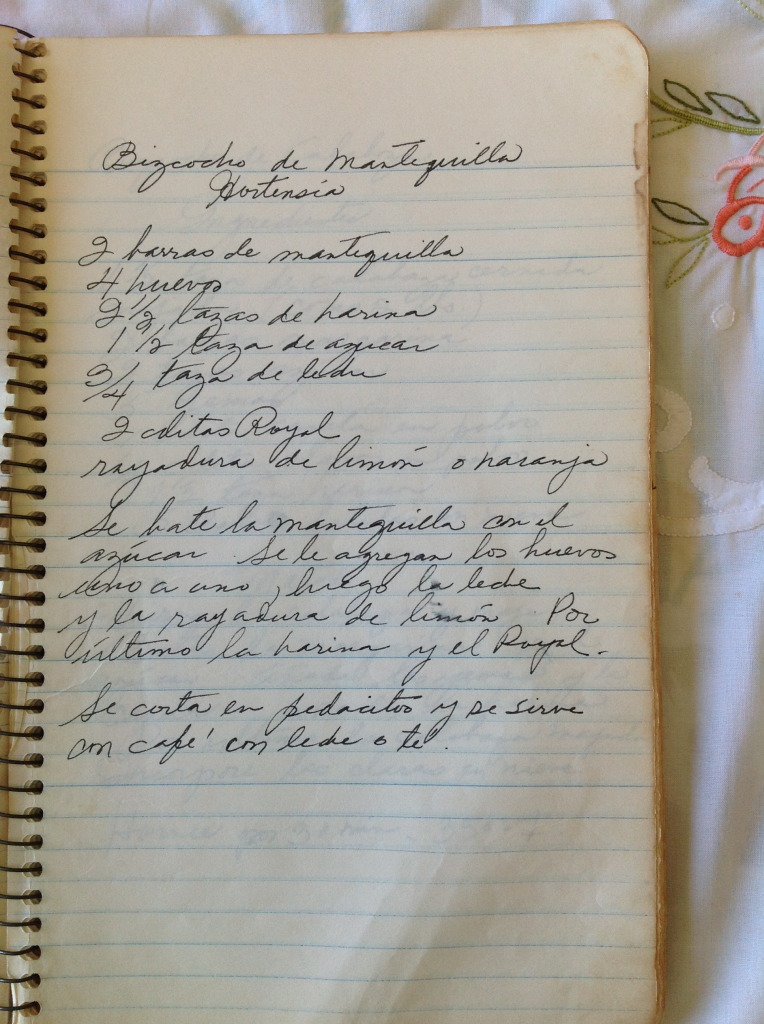 Bizcocho de Mantequilla
Hortensia
2 barras de mantequilla
4 huevos
2 1/2 tazas de harina
1 1/2 taza de azucar
3/4 taza de leche
2 cditas Royal
rayadura de limón o naranja
Se bate la mantequilla con el
azúcar. Se le agregan los huevos
uno a uno, luego la leche
y la rayadura de limón. Por
último la harina y el Royal.
Se corta en pedacitos y se sirve
con café con leche o te.